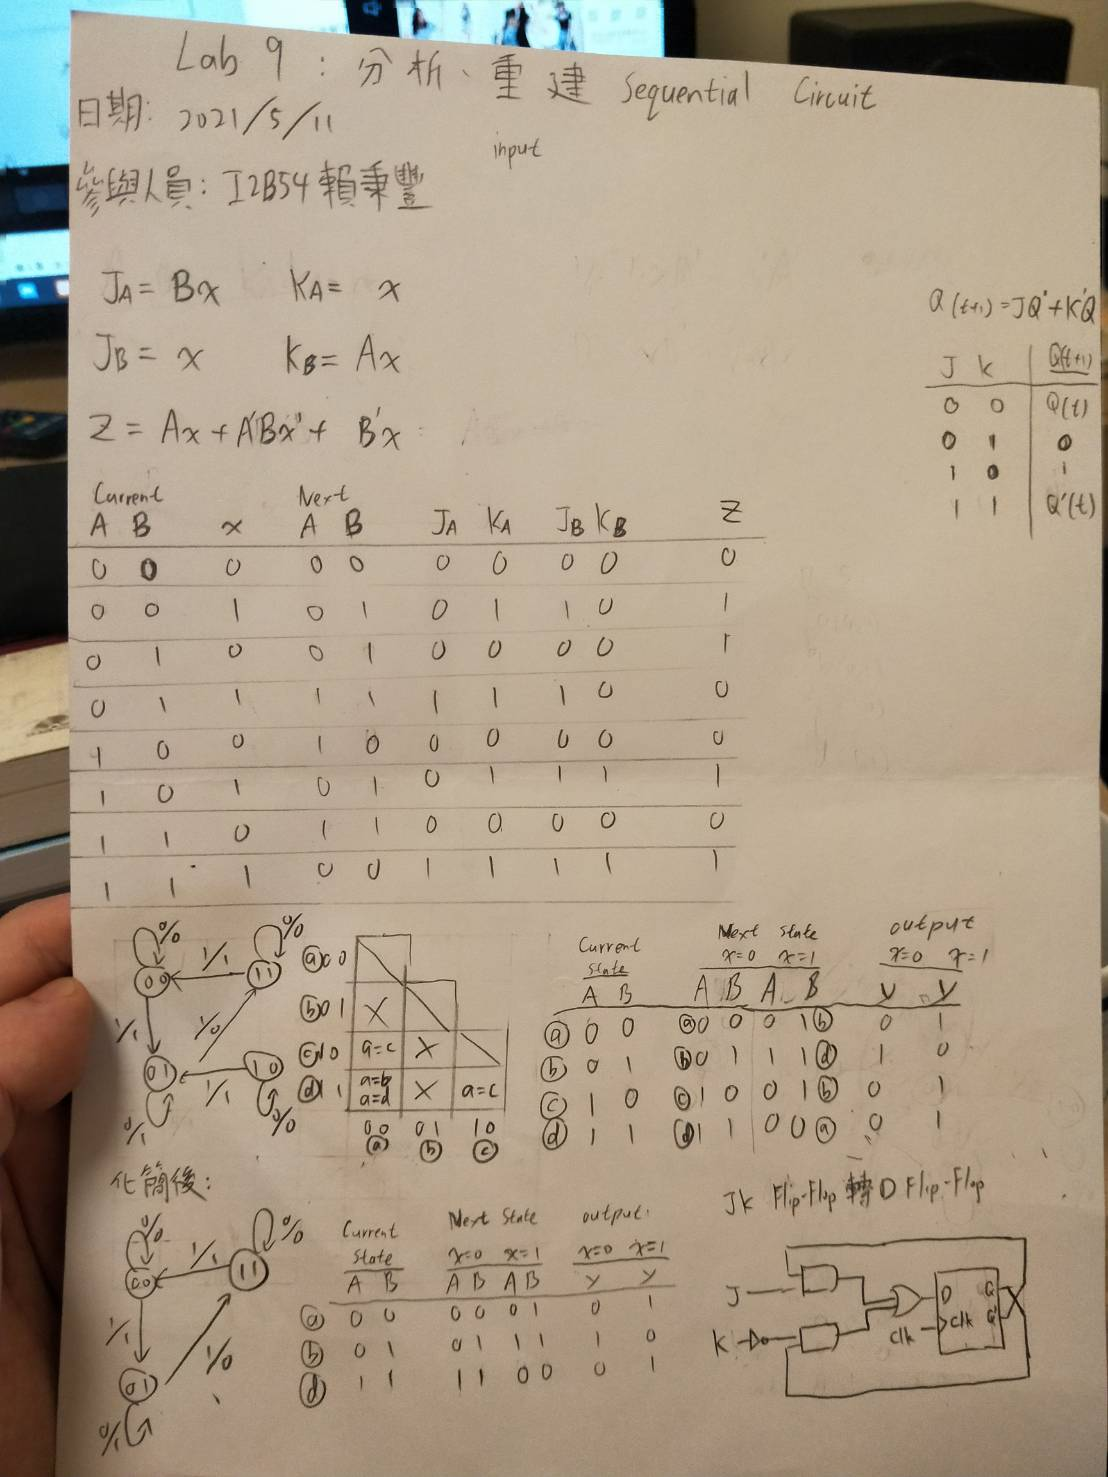 Lab 9 : 分析、重建 Sequential Circuit
日期: 2021/5/11
input
參與人員: I2B54 賴秉豐
JA = Bx KA = x
JB = x KB = Ax
Z = Ax + A'Bx' + B'x
Q(t+1) = JQ' + K'Q
J K Q(t+1)
0 0 Q(t)
0 1 0
1 0 1
1 1 Q'(t)
Current Next
A B x A B JA KA JB KB Z
0 0 0 0 0 0 0 0 0 0
0 0 1 0 1 0 1 1 0 1
0 1 0 0 1 0 0 0 0 1
0 1 1 1 1 1 1 1 0 0
1 0 0 1 0 0 0 0 0 0
1 0 1 0 1 0 1 1 1 1
1 1 0 1 1 0 0 0 0 0
1 1 1 0 0 1 1 1 1 1
0/0 0/0
00 1/1 11
1/1 1/0
01 1/1 10
0/1 0/0
ⓐ 0 0
ⓑ 0 1 X
ⓒ 1 0 a=c X
ⓓ 1 1 a=b a=d X a=c
0 0 0 1 1 0
ⓐ ⓑ ⓒ
Current State Next State output
x=0 x=1 x=0 x=1
A B A B A B y y
ⓐ 0 0 ⓐ 0 0 0 1 ⓑ 0 1
ⓑ 0 1 ⓑ 0 1 1 1 ⓓ 1 0
ⓒ 1 0 ⓒ 1 0 0 1 ⓑ 0 1
ⓓ 1 1 ⓓ 1 1 0 0 ⓐ 0 1
化簡後:
0/0 0/0
00 1/1 11
1/1 1/0
01
0/1
Current State Next State output:
x=0 x=1 x=0 x=1
A B A B A B y y
ⓐ 0 0 0 0 0 1 0 1
ⓑ 0 1 0 1 1 1 1 0
ⓓ 1 1 1 1 0 0 0 1
JK Flip-Flop 轉 D Flip-Flop
J D Q
K clk clk Q'